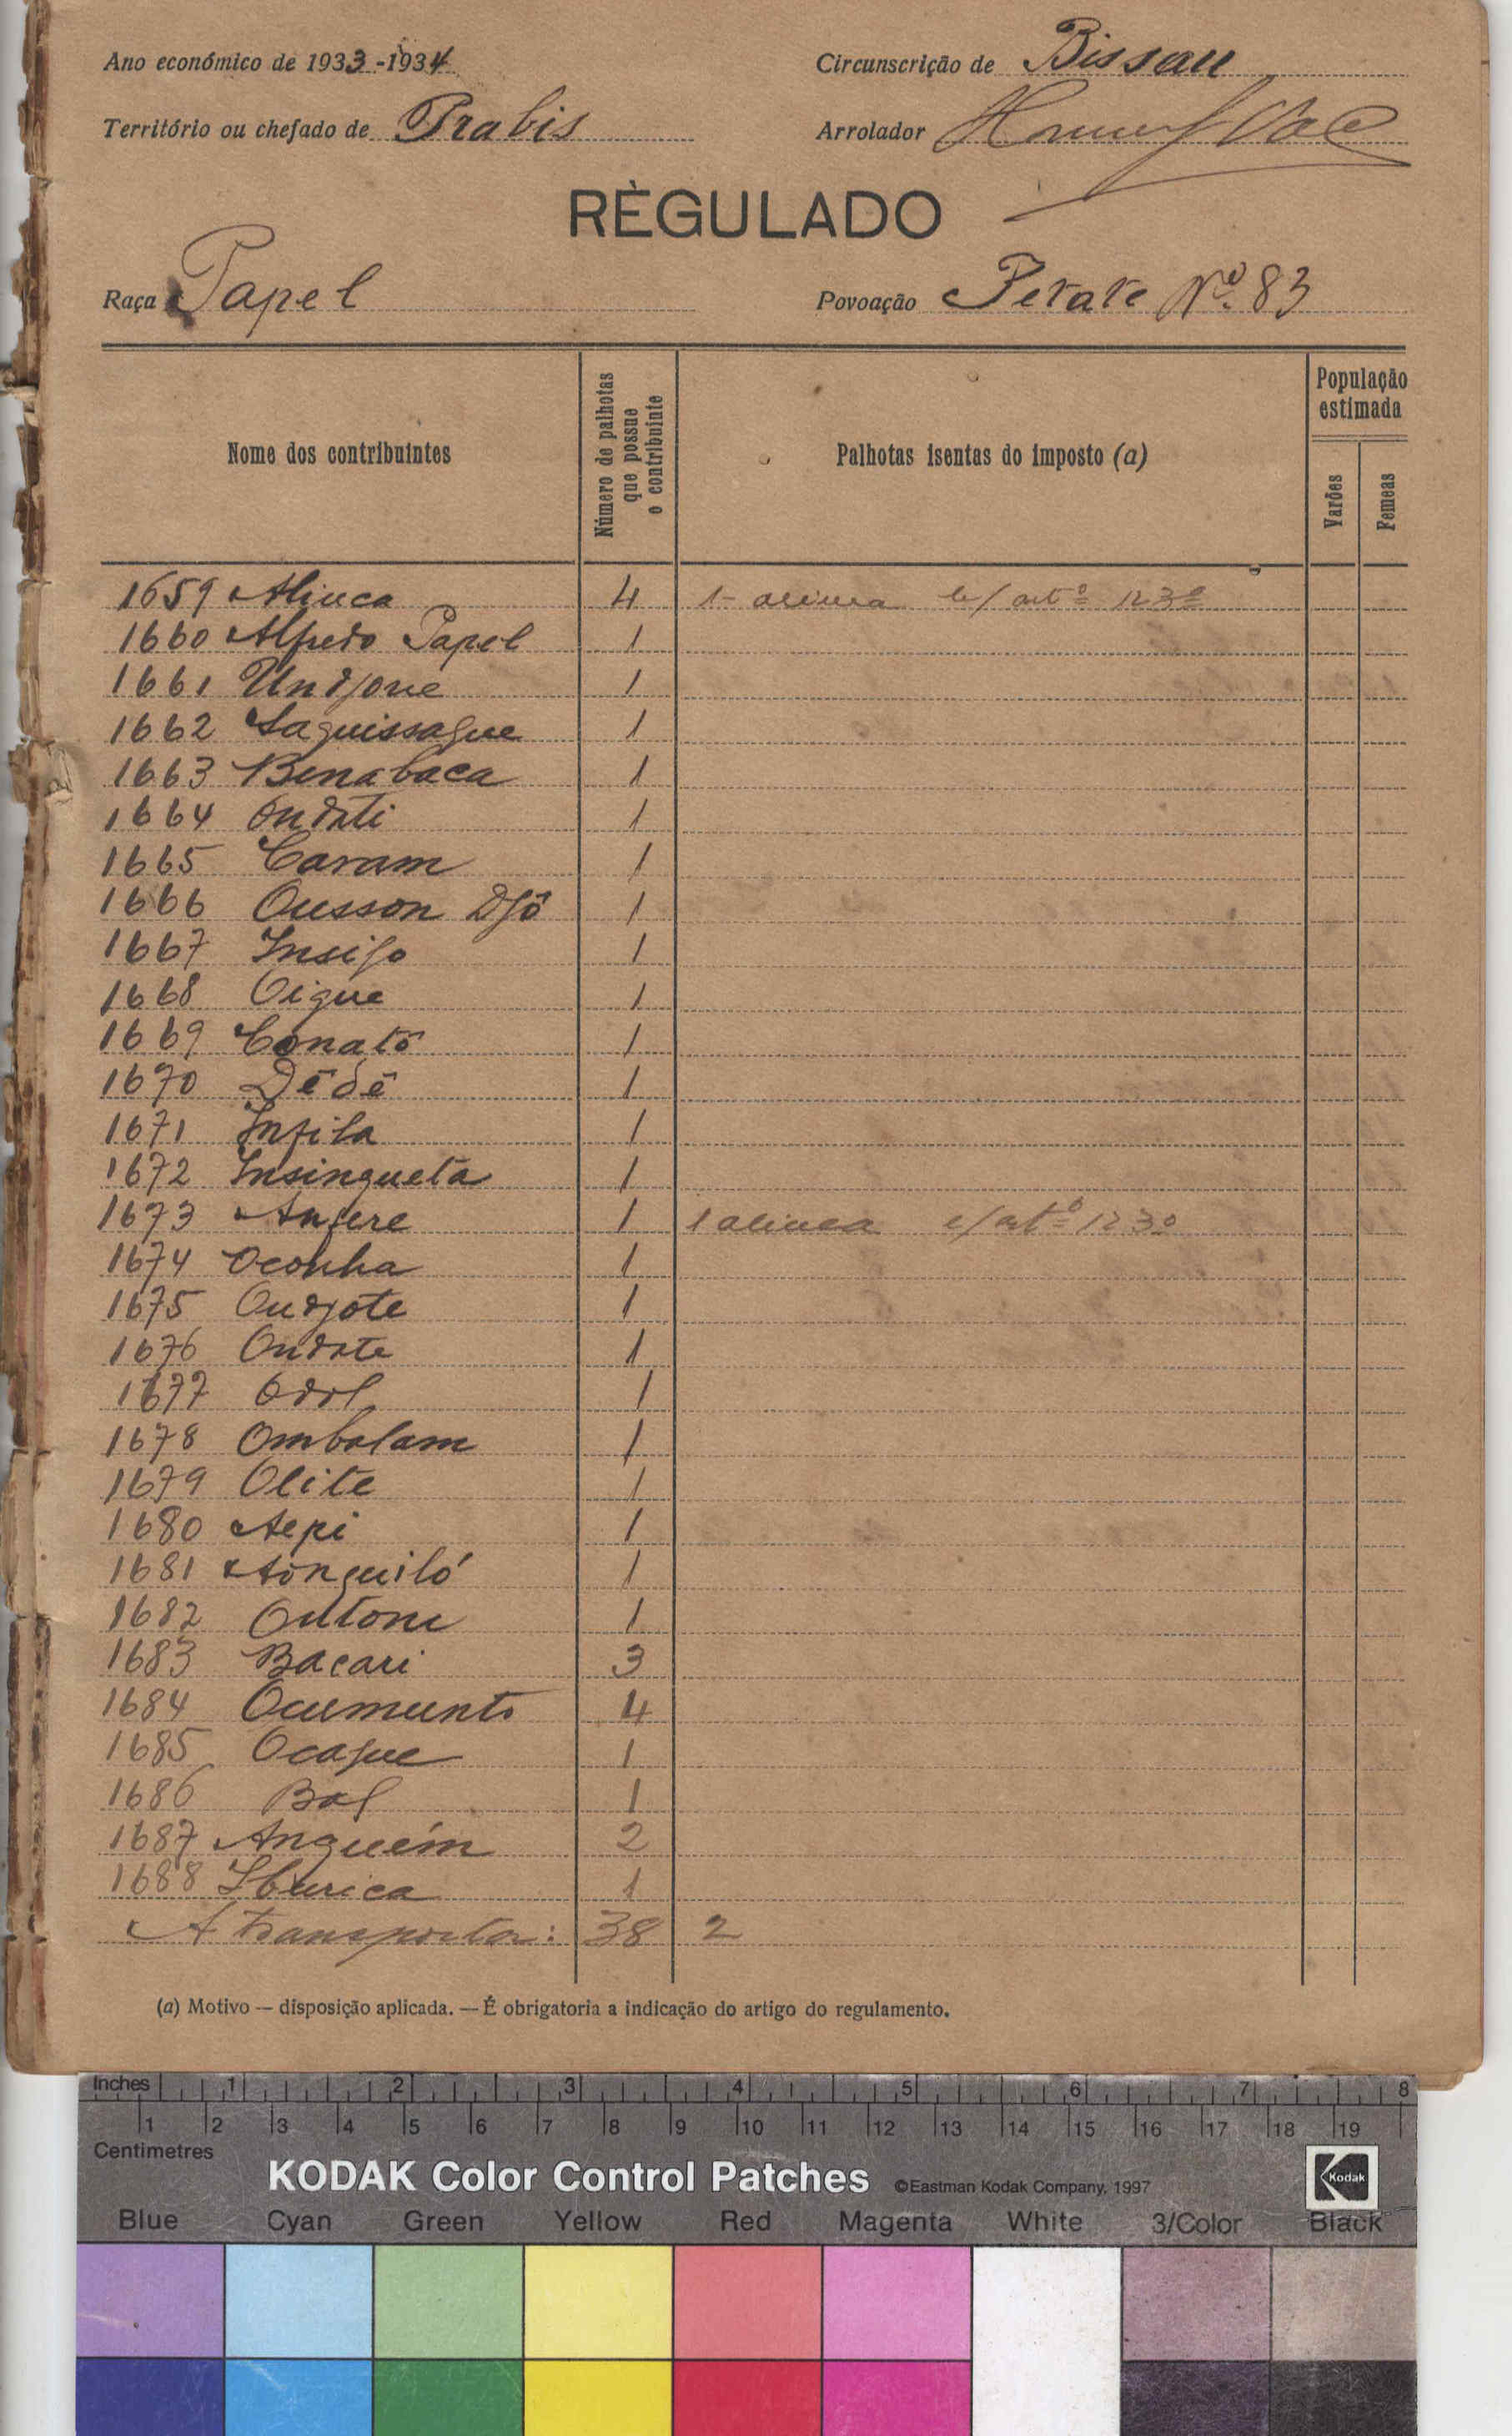 Ano económico de 1933-1934
Circunscrição de Bissau
Território ou chefado de Prabis
Arrolador
RÈGULADO
Raça Papel
Povoação Petate Nº 83
Nome dos contribuintes
Número de palhotas que possue o contribuinte
Palhotas isentas do imposto (a)
População estimada
Varões
Femeas
1659 Aliuca 4 1- alinea b/ artº 123º
1660 Alfredo Papel 1
1661 Undjone 1
1662 Saguissague 1
1663 Benabaca 1
1664 Ondati 1
1665 Caram 1
1666 Ousson Djô 1
1667 Insijo 1
1668 Oigue 1
1669 Conatô 1
1670 Dêdê 1
1671 Infila 1
1672 Insingueta 1
1673 1 1 alinea c/ artº 123º
1674 Oconha 1
1675 Ondjote 1
1676 Ondote 1
1677 Odol 1
1678 Ombolam 1
1679 Olite 1
1680 Aepi 1
1681 1
1682 Ontone 1
1683 Bacari 3
1684 Ocumunto 4
1685 Ocague 1
1686 Bol 1
1687 Anguém 2
1688 Iburica 1
A transportar: 38 2
(a) Motivo — disposição aplicada. — É obrigatoria a indicação do artigo do regulamento.
Inches 1 2 3 4 5 6 7 8
1 2 3 4 5 6 7 8 9 10 11 12 13 14 15 16 17 18 19
Centimetres
KODAK Color Control Patches ©Eastman Kodak Company, 1997 Kodak
Blue Cyan Green Yellow Red Magenta White 3/Color Black